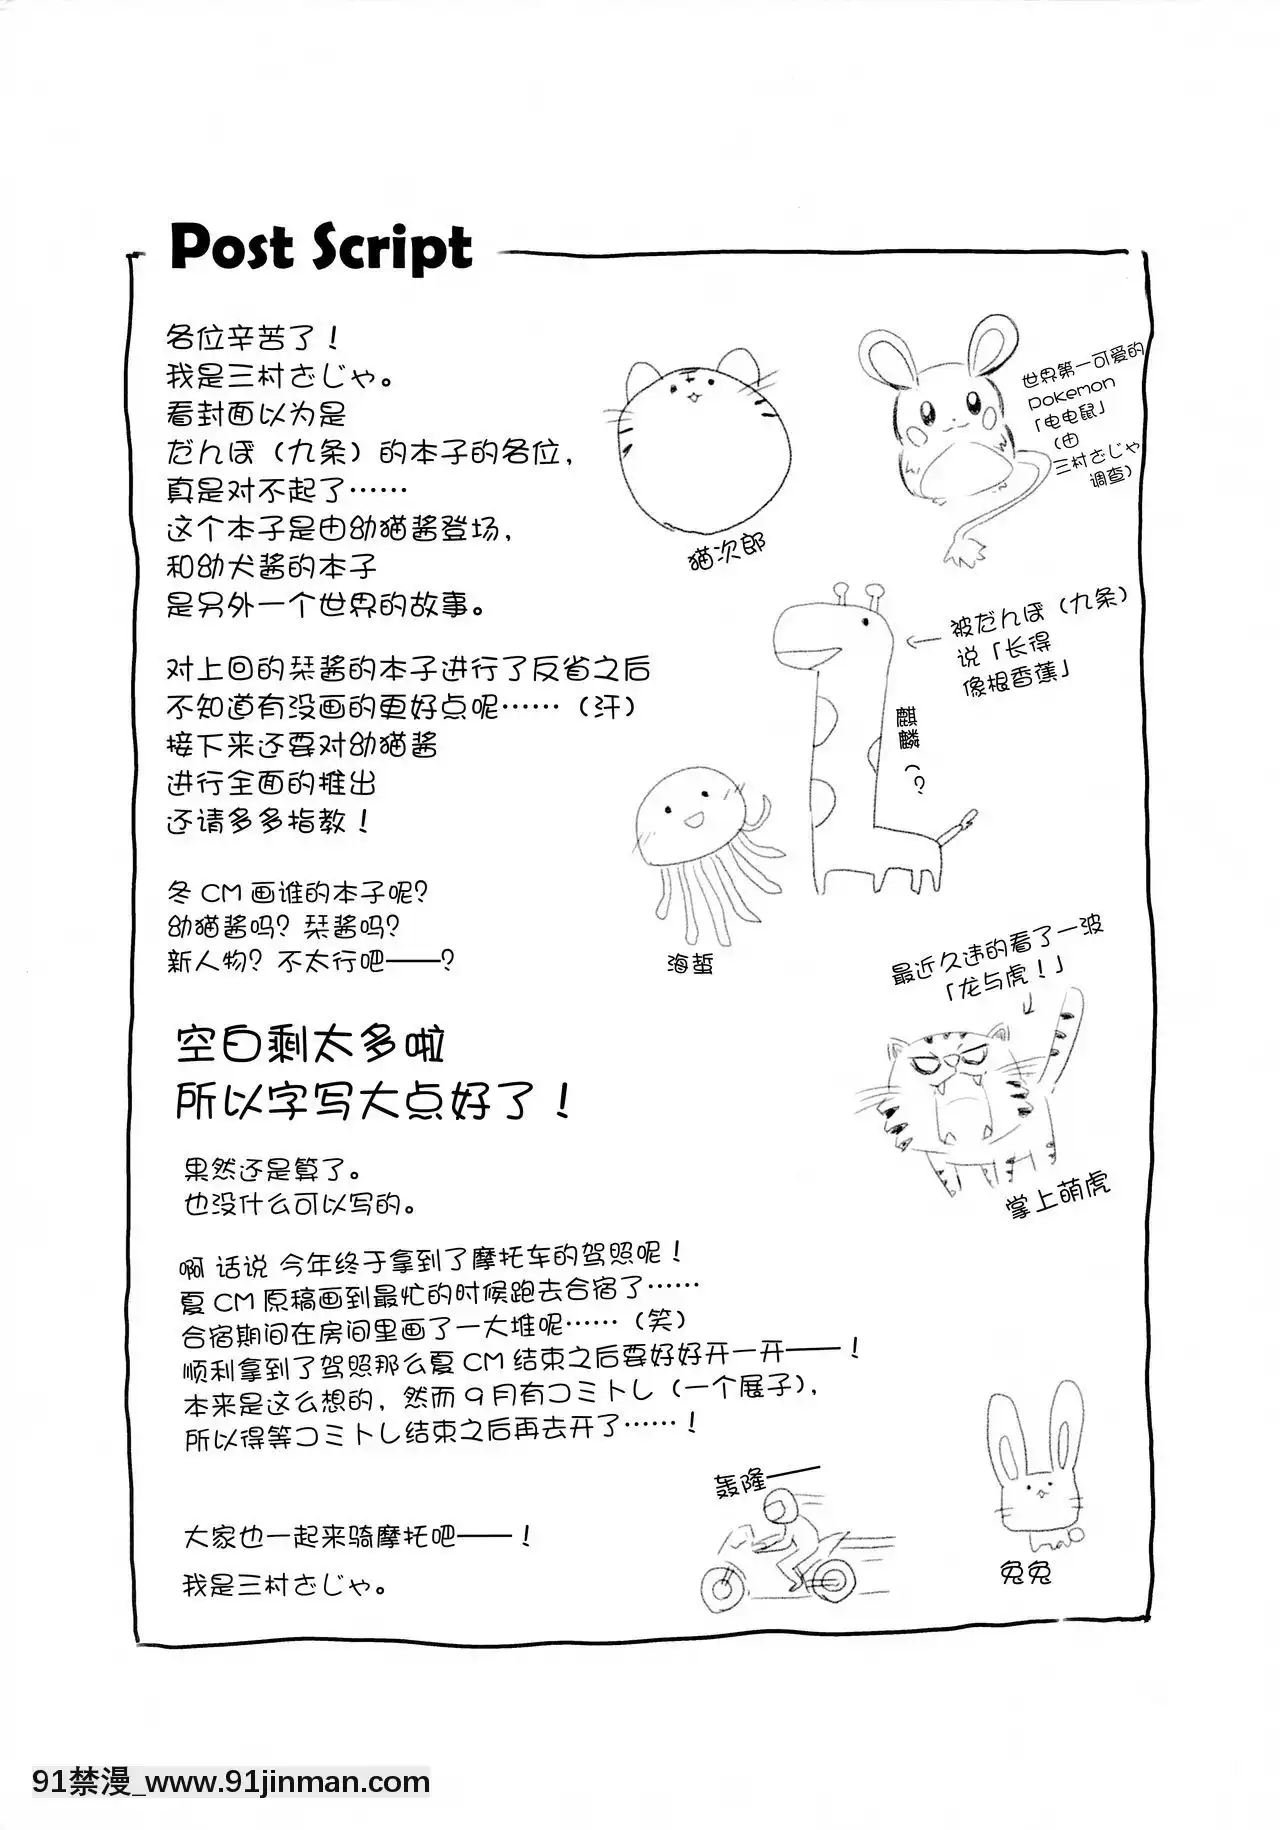 Post Script
各位辛苦了！
我是三村ざじゃ。
看封面以为是
だんぼ（九条）的本子的各位，
真是对不起了……
这个本子是由幼猫酱登场，
和幼犬酱的本子
是另外一个世界的故事。
对上回的栞酱的本子进行了反省之后
不知道有没画的更好点呢……（汗）
接下来还要对幼猫酱
进行全面的推出
还请多多指教！
冬CM画谁的本子呢？
幼猫酱吗？栞酱吗？
新人物？不太行吧——？
空白剩太多啦
所以字写大点好了！
果然还是算了。
也没什么可以写的。
啊 话说 今年终于拿到了摩托车的驾照呢！
夏CM原稿画到最忙的时候跑去合宿了……
合宿期间在房间里画了一大堆呢……（笑）
顺利拿到了驾照那么夏CM结束之后要好好开一开——！
本来是这么想的，然而9月有コミトレ（一个展子），
所以得等コミトレ结束之后再去开了……！
大家也一起来骑摩托吧——！
我是三村ざじゃ。
猫次郎
世界第一可爱的
pokemon
「电电鼠」
（由
三村ざじゃ
调查）
←被だんぼ（九条）
说「长得
像根香蕉」
麒麟（？
海蜇
最近久违的看了一波
「龙与虎！」
掌上萌虎
轰隆——
兔兔
91禁漫_www.91jinman.com